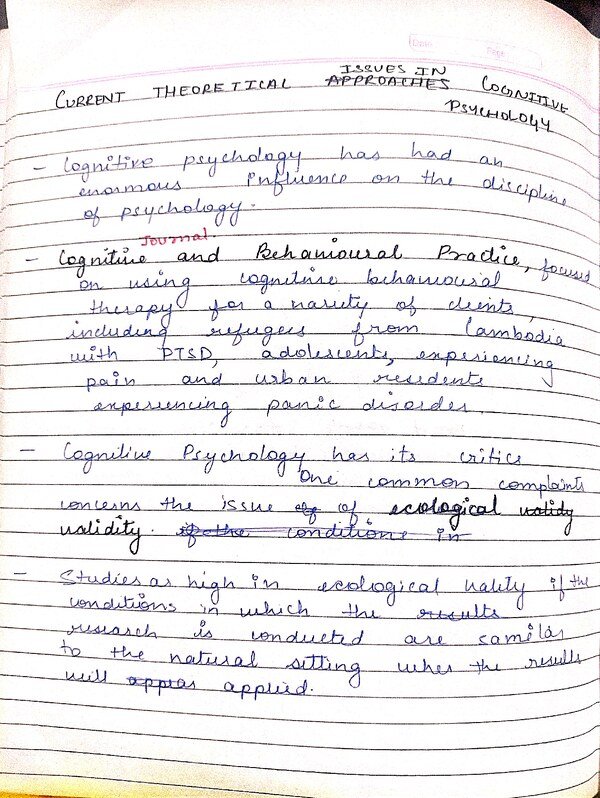 ISSUES IN
CURRENT THEORETICAL APPROACHES COGNITIVE
PSYCHOLOGY
- Cognitive psychology has had an
enormous influence on the discipline
of psychology.
Journal
- Cognitive and Behavioural Practice, focused
on using cognitive behavioural
therapy for a variety of clients,
including refugees from Cambodia
with PTSD, adolescents, experiencing
pain and urban residents
experiencing panic disorder.
- Cognitive Psychology has its critics
One common complaint
concerns the issue of of ecological validy
validity. if the conditions in
- Studies as high in ecological vality if the
conditions in which the results
research is conducted are similar
to the natural setting wher the results
will appear applied.